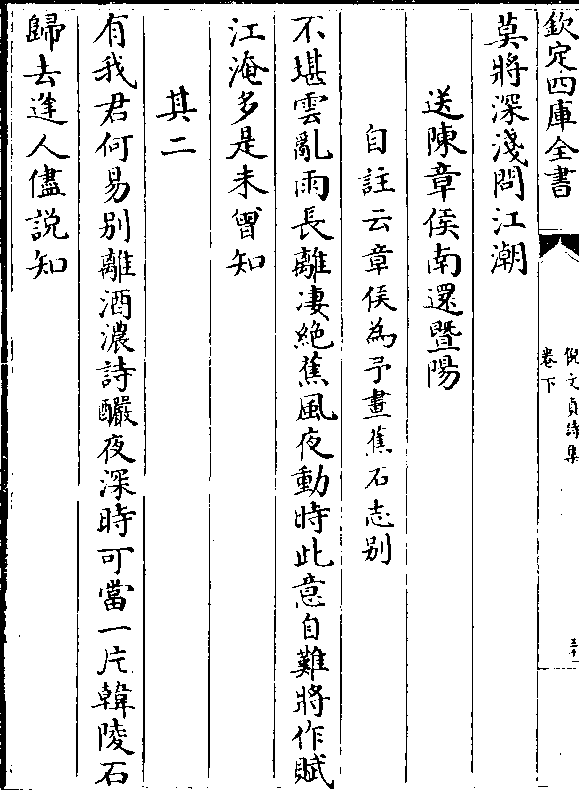 欽定四庫全書
倪文貞詩集
卷下
莫將深淺問江潮
送陳章侯南還暨陽
自註云章侯為予畫蕉石志别
不堪雲亂雨長離凄絶蕉風夜動時此意自難將作賦
江淹多是未曾知
其二
有我君何易别離酒濃詩釅夜深時可當一片韓陵石
歸去逢人儘説知